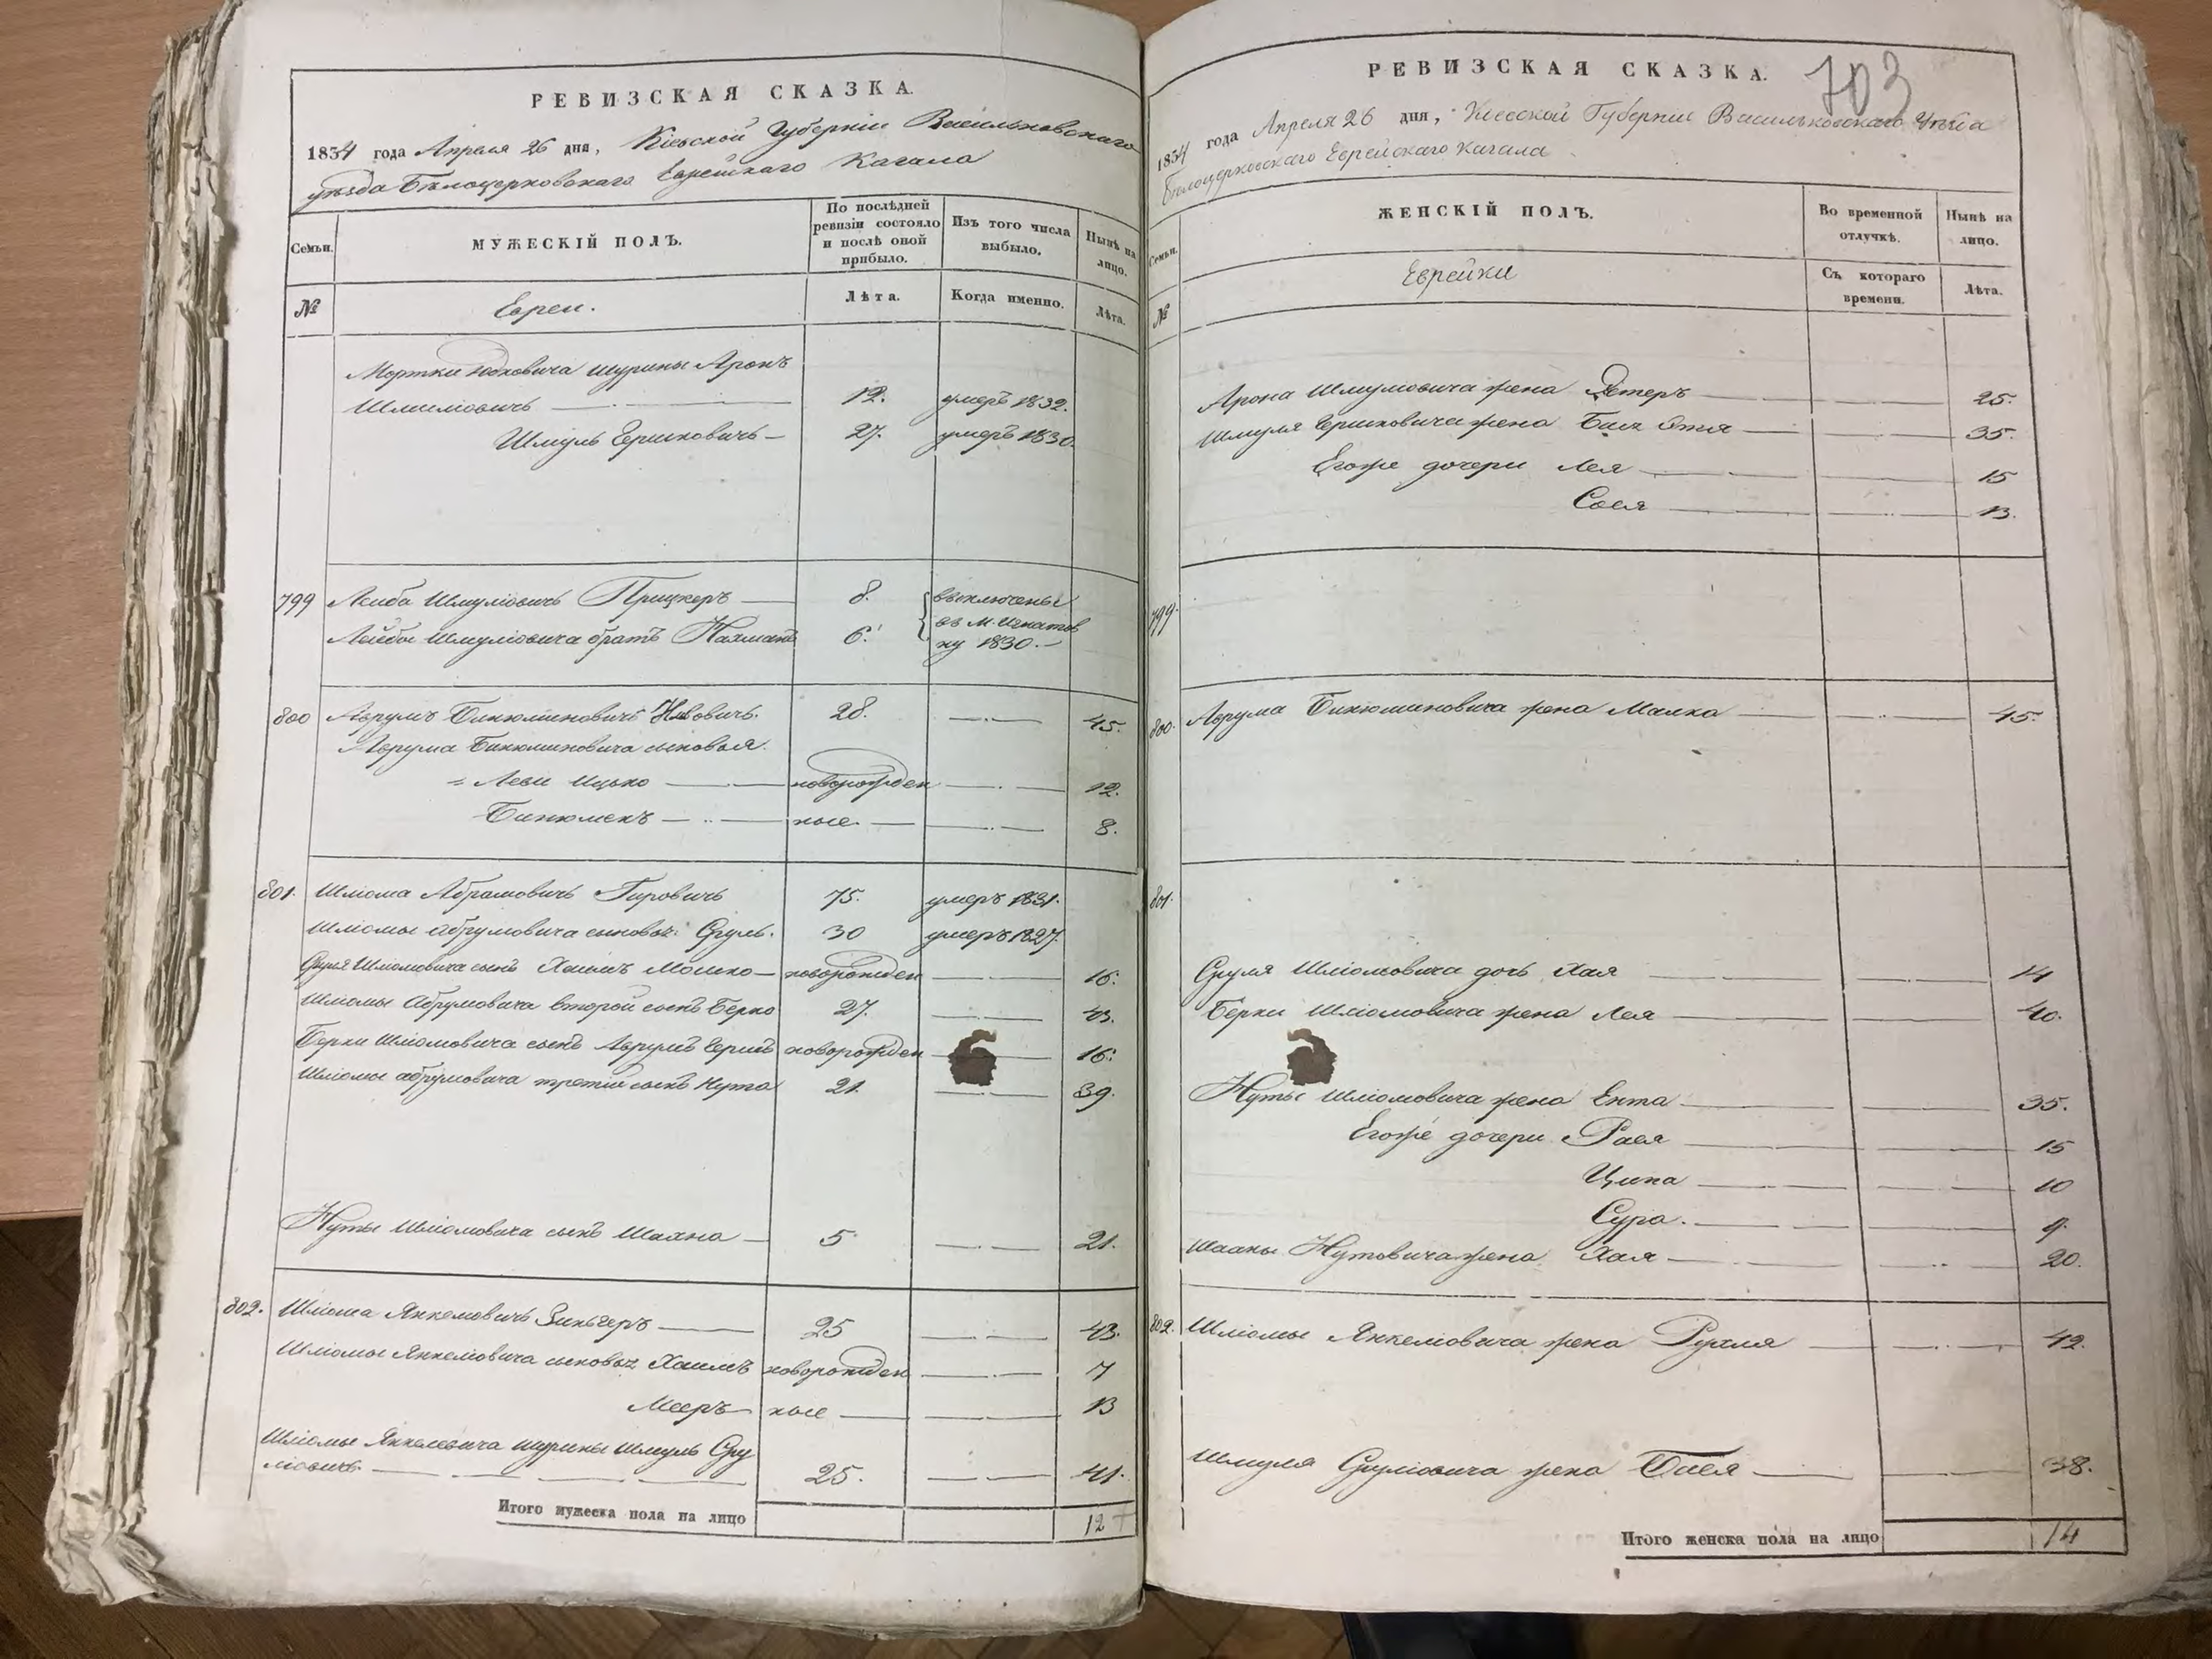 РЕВИЗСКАЯ СКАЗКА.
1834 года Апреля 26 дня, Кіевской Губерніи Васильковскаго
уѣзда Бѣлоцерковскаго Еврейскаго Кагала
Семьи.
МУЖЕСКІЙ ПОЛЪ.
По послѣдней ревизіи состояло и послѣ оной прибыло.
Изъ того числа выбыло.
Нынѣ на лицо.
№
Евреи.
Лѣта.
Когда именно.
Лѣта.
Мортки Юдковича шурины Аронъ
Шмулiовичь 12. умеръ 1832.
Шмуль Гершковичь 27. умеръ 1830.
799 Лейба Шмулiовичь Прицкеръ 8. выключены
Лейбы Шмулiовича братъ Нахманъ 6. въ м. Игнатов
ку 1830.
800 Аврумъ Бинюминовичь 28. 45.
Аврума Бинюминовича сыновья
Леви Ицько новорожден 12.
Бинюменъ ные 8.
801. Шлiома Абрамовичь Гировичь 75. умеръ 1831.
Шлiомы Абрумовича сыновья: Сруль. 30 умеръ 1827.
Сруля Шлiомовича сынъ Хаимъ Мошко новорожден 16.
Шлiомы Абрумовича второй сынъ Берко 27. 43.
Берки Шлiомовича сынъ Аврумъ Гершъ новорожден 16.
Шлiомы Абрумовича третiй сынъ Нута 21. 39.
Нуты Шлiомовича сынъ Шахна 5 21.
802. Шлiома Янкелiовичь Зингеръ 25 43.
Шлiомы Янкелiовича сыновья Хаимъ новорожден 7
Мееръ ные 13
Шлiомы Янкелевича шурины Шмуль Сру
лiовичь. 25. 41.
Итого мужеска пола на лицо 12
РЕВИЗСКАЯ СКАЗКА.
703
1834 года Апреля 26 дня, Кіевской Губерніи Васильковскаго Уѣзда
Бѣлоцерковскаго Еврейскаго Кагала
Семьи.
ЖЕНСКІЙ ПОЛЪ.
Во временной отлучкѣ.
Нынѣ на лицо.
№
Еврейки
Съ котораго времени.
Лѣта.
Арона Шмулiовича жена Эстеръ 25.
Шмуля Гершковича жена Бася Этя 35.
Егоже дочери Лея 15
Сося 13.
799.
800. Аврума Бинюминовича жена Малка 45.
801.
Сруля Шлiомовича дочь Хая 14
Берки Шлiомовича жена Лея 40.
Нуты Шлiомовича жена Ента 35.
Егоже дочери Рася 15
Ципа 10
Сура. 9.
Шахны Нутовича жена Хая 20.
802. Шлiомы Янкелiовича жена Рухля 42.
Шмуля Срулiовича жена Бася 38.
Итого женска пола на лицо 14